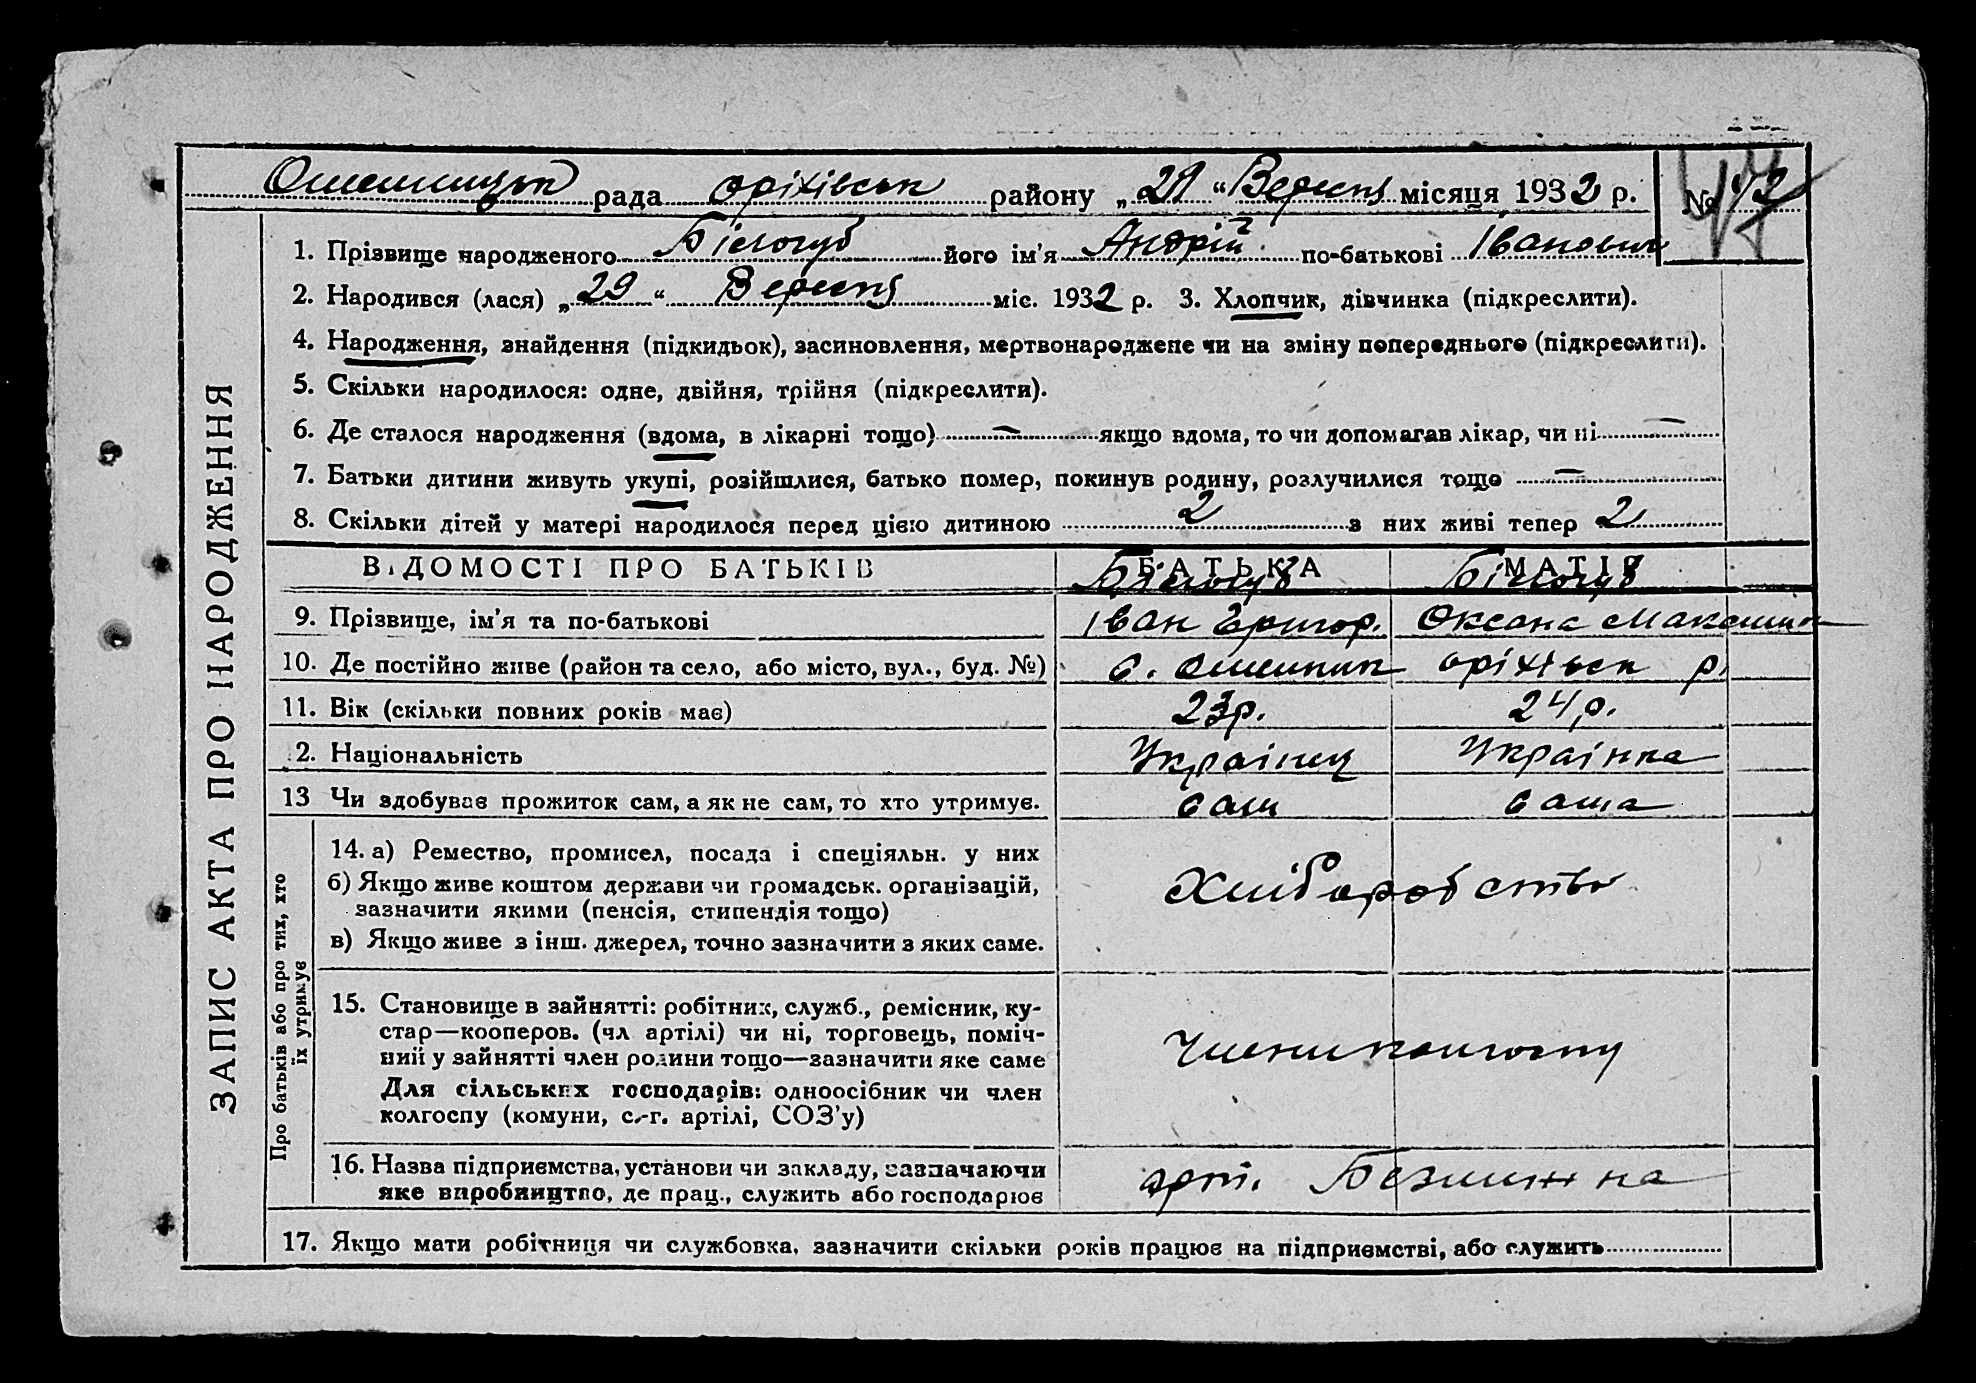 Омельницьк рада оріхівськ района „29“ Вересня місяця 1932 р. № 42
47
ЗАПИС АКТА ПРО НАРОДЖЕННЯ
1. Прізвище народженого Білогуб його ім'я Андрій по-батькові Іванович
2. Народився (лася) „29“ Вересня міс. 1932 р. 3. Хлопчик, дівчинка (підкреслити).
4. Народження, знайдення (підкидьок), засиновлення, мертвонароджене чи на зміну попереднього (підкреслити).
5. Скільки народилося: одне, двійня, трійня (підкреслити).
6. Де сталося народження (вдома, в лікарні тощо) — якщо вдома, то чи допомагав лікар, чи ні —
7. Батьки дитини живуть укупі, розійшлися, батько помер, покинув родину, розлучилися тощо —
8. Скільки дітей у матері народилося перед цією дитиною 2 з них живі тепер 2
ВІДОМОСТІ ПРО БАТЬКІВ БАТЬКА МАТІР
Білогуб Білогуб
9. Прізвище, ім'я та по-батькові Іван Григор. Оксана
10. Де постійно живе (район та село, або місто, вул., буд. №) с. Омельник оріхівськ р.
11. Вік (скільки повних років має) 23р. 24р.
2. Національність Українец Українка
13 Чи здобуває прожиток сам, а як не сам, то хто утримує. сам сама
Про батьків або про тих, хто
їх утримує
14. а) Ремество, промисел, посада і спеціяльн. у них
б) Якщо живе коштом держави чи громадськ. організацій,
зазначити якими (пенсія, стипендія тощо)
в) Якщо живе з інш. джерел, точно зазначити з яких саме.
Хліборобство
15. Становище в зайнятті: робітник, служб., ремісник, ку-
стар—кооперов. (чл артілі) чи ні, торговець, поміч-
ний у зайнятті член родини тощо—зазначити яке саме
Для сільських господарів: одноосібник чи член
колгоспу (комуни, с.-г. артілі, СОЗ'у)
Члени колгоспу
16. Назва підприємства, установи чи закладу, зазначаючи
яке виробництво, де прац., служить або господарює
арт.
17. Якщо мати робітниця чи службовка, зазначити скільки років працює на підприємстві, або служить